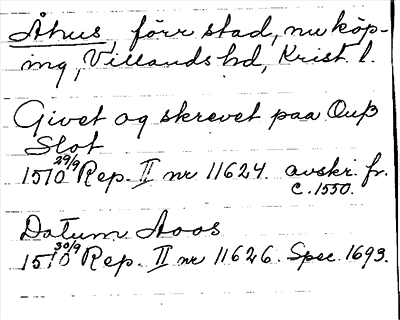 Åhus, förr stad, nu köp-
ing, Villands hd, Krist. l.
Givet og skrevet paa Oup
Slot
1510 29/9 Rep. II nr 11624. avskr. fr.
c. 1550.
Datum Aoos
1510 30/9 Rep. II nr 11626. Spec. 1693.